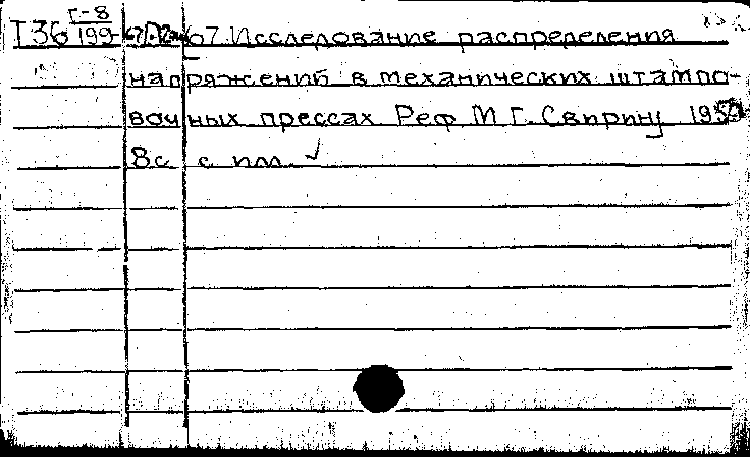 Г-8
Т36 199 67. Исследование распределения
напряжений в механических штампо-
вочных прессах Реф М Г. Свирину
8с с ил.